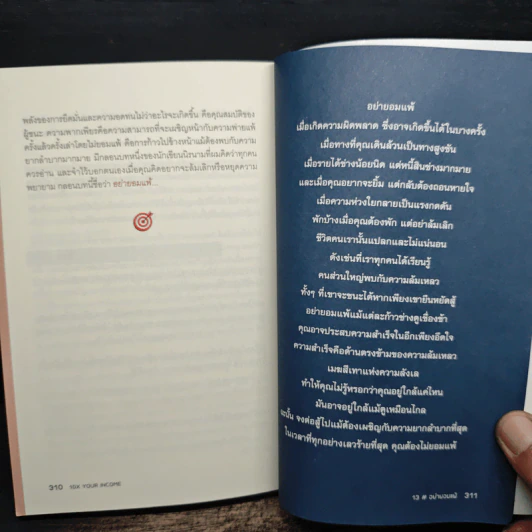 พลังของการยืดมั่นและความอดทนไม่ว่าอะไรจะเกิดขึ้น คือคุณสมบัติของ
ผู้ชนะ ความพากเพียรคือความสามารถที่จะเผชิญหน้ากับความพ่ายแพ้
ครั้งแล้วครั้งเล่าโดยไม่ยอมแพ้ คือการก้าวไปข้างหน้าแม้ต้องพบกับความ
ยากลำบากมากมาย มีกลอนบทหนึ่งของนักเขียนนิรนามที่ผมคิดว่าทุกคน
ควรอ่าน และจำไว้บอกตนเองเมื่อคุณคิดอยากจะล้มเลิกหรือหยุดความ
พยายาม กลอนบทนี้ชื่อว่า อย่ายอมแพ้...
310 10X YOUR INCOME
อย่ายอมแพ้
เมื่อเกิดความผิดพลาด ซึ่งอาจเกิดขึ้นได้ในบางครั้ง
เมื่อทางที่คุณเดินล้วนเป็นทางสูงชัน
เมื่อรายได้ช่างน้อยนิด แต่หนี้สินช่างมากมาย
และเมื่อคุณอยากจะยิ้ม แต่กลับต้องถอนหายใจ
เมื่อความห่วงใยกลายเป็นแรงกดดัน
พักบ้างเมื่อคุณต้องพัก แต่อย่าล้มเลิก
ชีวิตคนเรานั้นแปลกและไม่แน่นอน
ดังเช่นที่เราทุกคนได้เรียนรู้
คนส่วนใหญ่พบกับความล้มเหลว
ทั้งๆ ที่เขาจะชนะได้หากเพียงเขายืนหยัดสู้
อย่ายอมแพ้แม้แต่ละก้าวช่างดูเชื่องช้า
คุณอาจประสบความสำเร็จในอีกเพียงอึดใจ
ความสำเร็จคือด้านตรงข้ามของความล้มเหลว
เมฆสีเทาแห่งความลังเล
ทำให้คุณไม่รู้หรอกว่าคุณอยู่ใกล้แค่ไหน
มันอาจอยู่ใกล้แม้ดูเหมือนไกล
ฉะนั้น จงต่อสู้ไปแม้ต้องเผชิญกับความยากลำบากที่สุด
ในเวลาที่ทุกอย่างเลวร้ายที่สุด คุณต้องไม่ยอมแพ้
13 อย่ายอมแพ้ 311